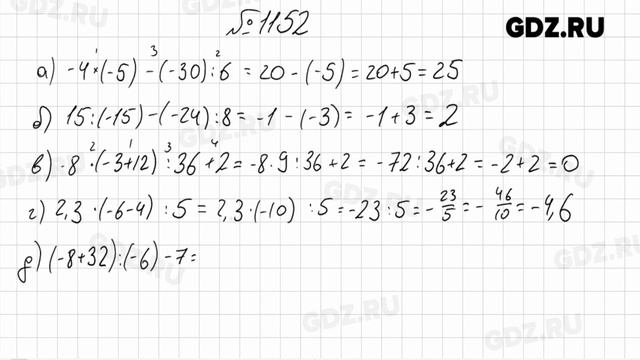 №1152
GDZ.RU
а) -4·(-5) - (-30) : 6 = 20 - (-5) = 20+5 = 25
б) 15 : (-15) - (-24) : 8 = -1 - (-3) = -1+3 = 2
в) -8·(-3+12) : 36+2 = -8·9 : 36+2 = -72 : 36+2 = -2+2 = 0
г) 2,3·(-6-4) : 5 = 2,3·(-10) : 5 = -23 : 5 = -23/5 = -46/10 = -4,6
д) (-8+32) : (-6) - 7 =